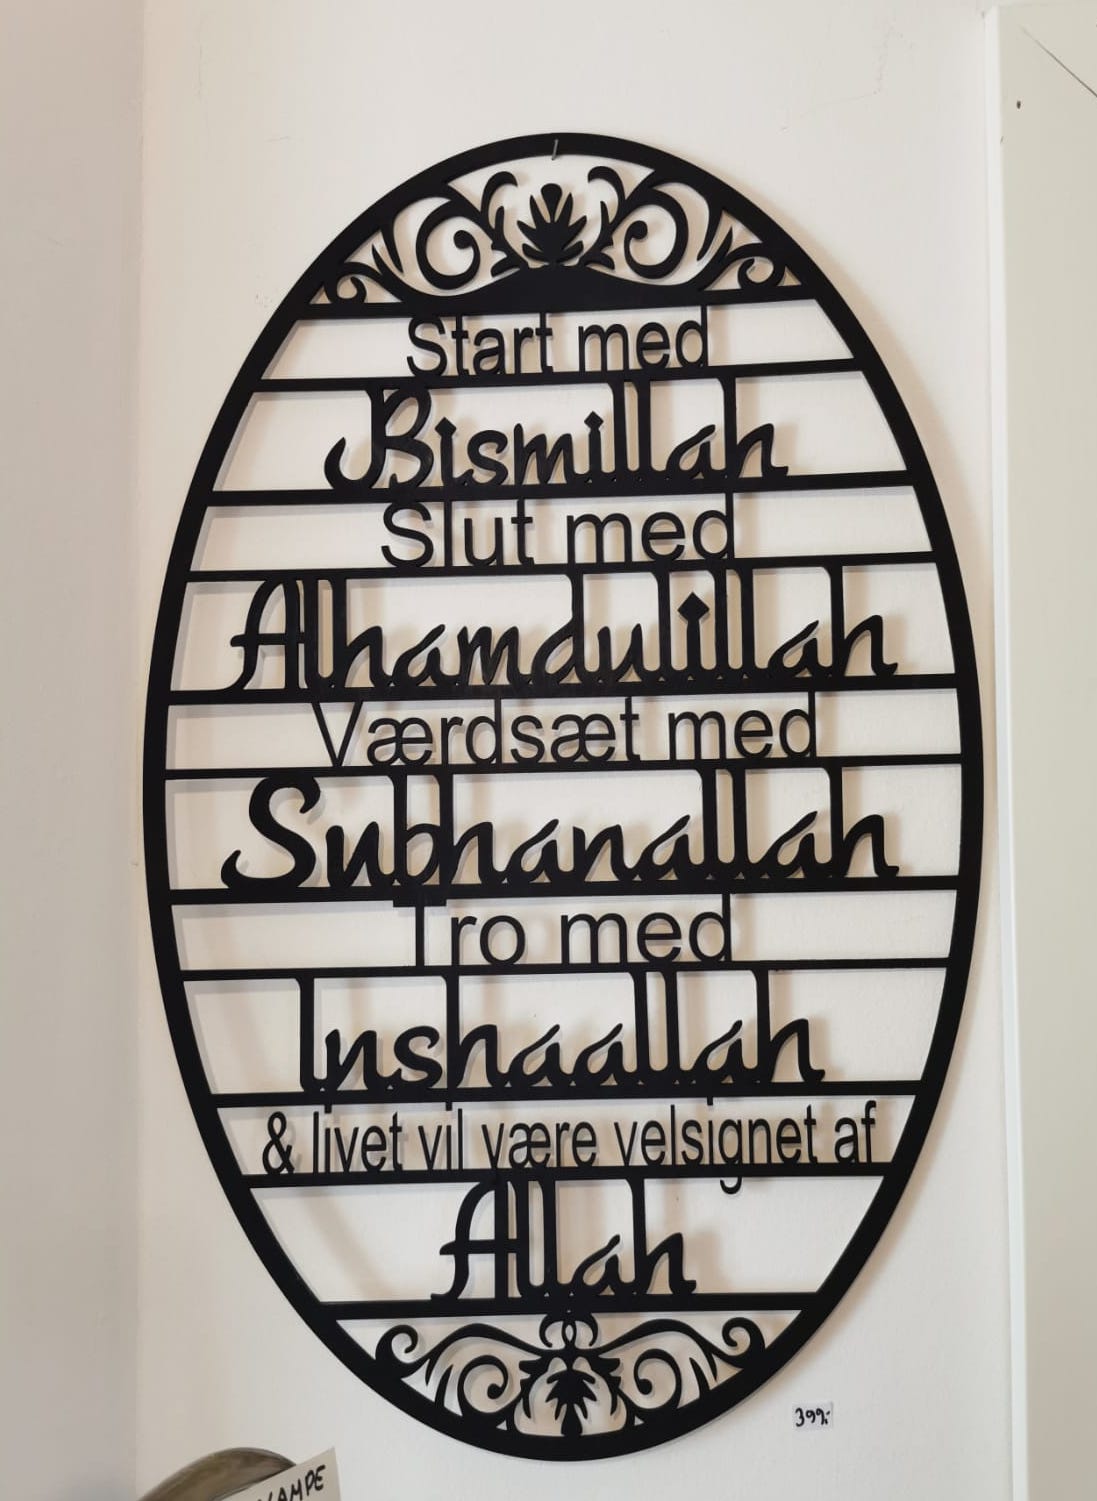 Start med
Bismillah
Slut med
Alhamdulillah
Værdsæt med
Subhanallah
Tro med
Inshaallah
& livet vil være velsignet af
Allah
399,-